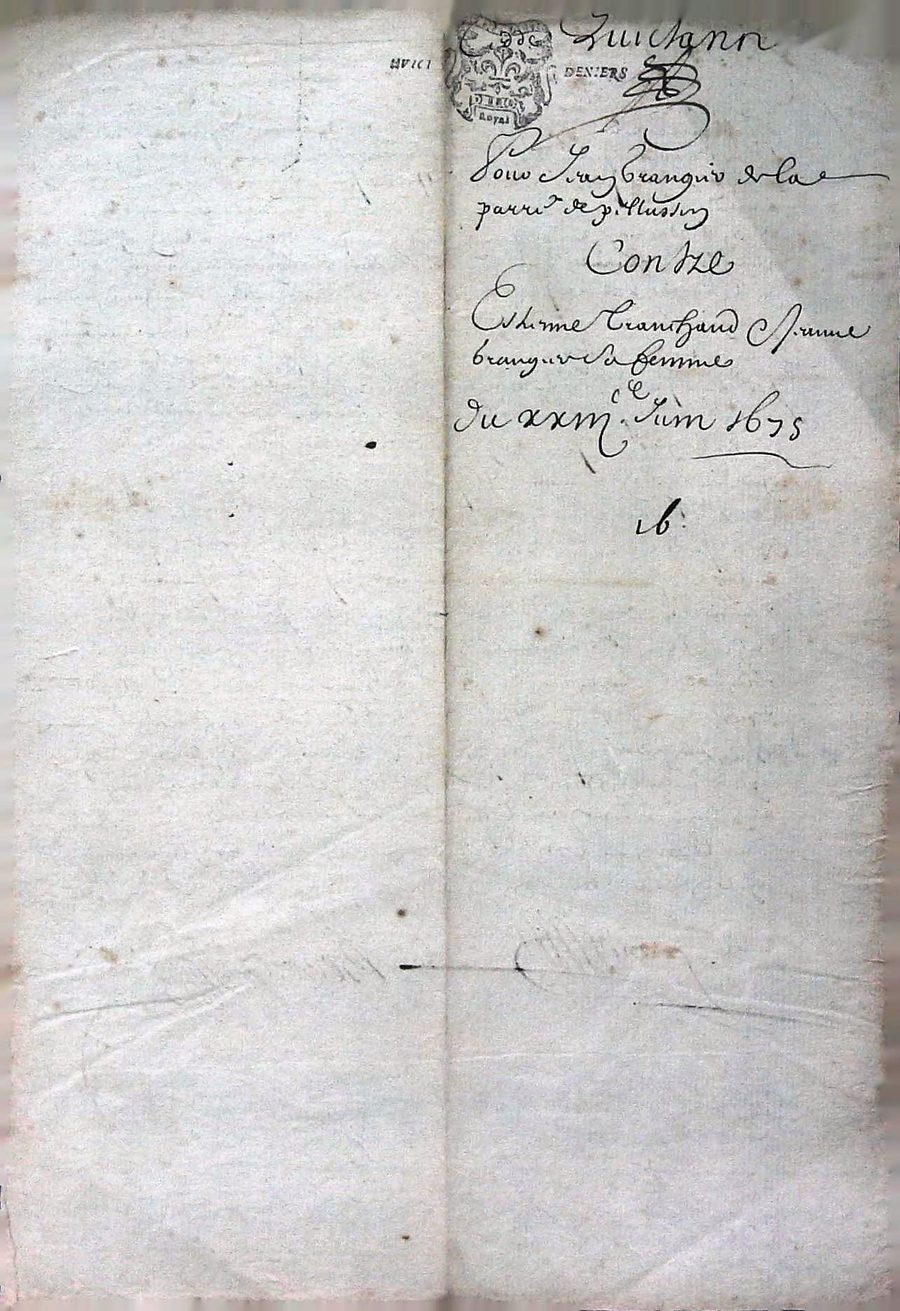 DENIERS
Royal
Pour Jean brangier de la
parr.e de pellussin
Contre
Estienne Tranchand & Jeanne
brangier sa femme
du xxiii.e Juin 1675
16